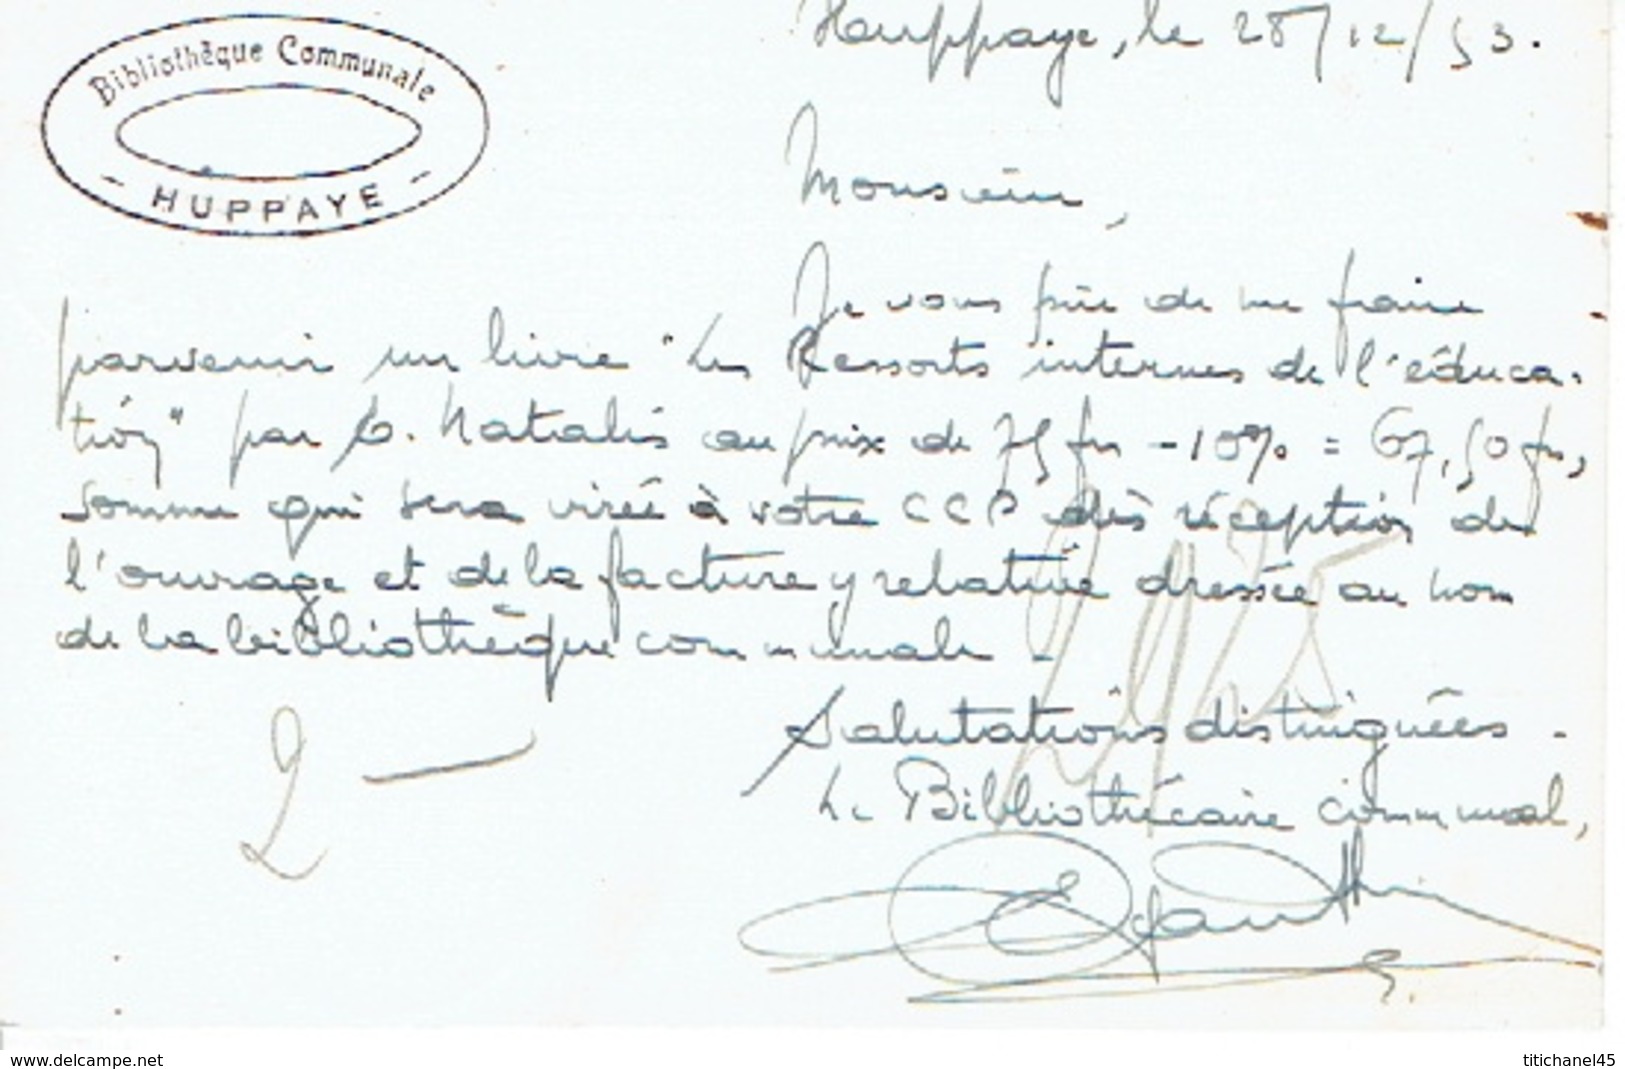 Bibliothèque Communale
- HUPPAYE -
Huppaye, le 28/12/53.
Monsieur,
Je vous prie de me faire
parvenir un livre "Les Ressorts internes de l'éduca-
tion" par E. Natalis au prix de 75 frs - 10% = 67,50 frs,
somme qui sera virée à votre CCP dès réception de
l'ouvrage et de la facture y relative dressée au nom
de la bibliothèque communale -
Salutations distinguées -
Le Bibliothécaire communal,
2 —
www.delcampe.net
titichanel45